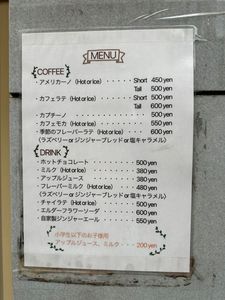 MENU
COFFEE
・アメリカーノ (Hot or ice) ・・・・・・ Short 450 yen
Tall 500 yen
・カフェラテ (Hot or ice) ・・・・・・・ Short 500 yen
Tall 600 yen
・カプチーノ ・・・・・・・・・・・・・ 500 yen
・カフェモカ (Hot or ice) ・・・・・・・ 550 yen
・季節のフレーバーラテ (Hot or ice) ・・・ 600 yen
(ラズベリー or ジンジャーブレッド or 塩キャラメル)
DRINK
・ホットチョコレート ・・・・・・・・・ 500 yen
・ミルク (Hot or ice) ・・・・・・・・・ 380 yen
・アップルジュース ・・・・・・・・・・ 380 yen
・フレーバーミルク (Hot or ice) ・・・・・ 480 yen
(ラズベリー or ジンジャーブレッド or 塩キャラメル)
・チャイラテ (Hot or ice) ・・・・・・・ 500 yen
・エルダーフラワーソーダ ・・・・・・・ 600 yen
・自家製ジンジャーエール ・・・・・・・ 550 yen
小学生以下のお子様用
アップルジュース、ミルク ・・・ 200 yen